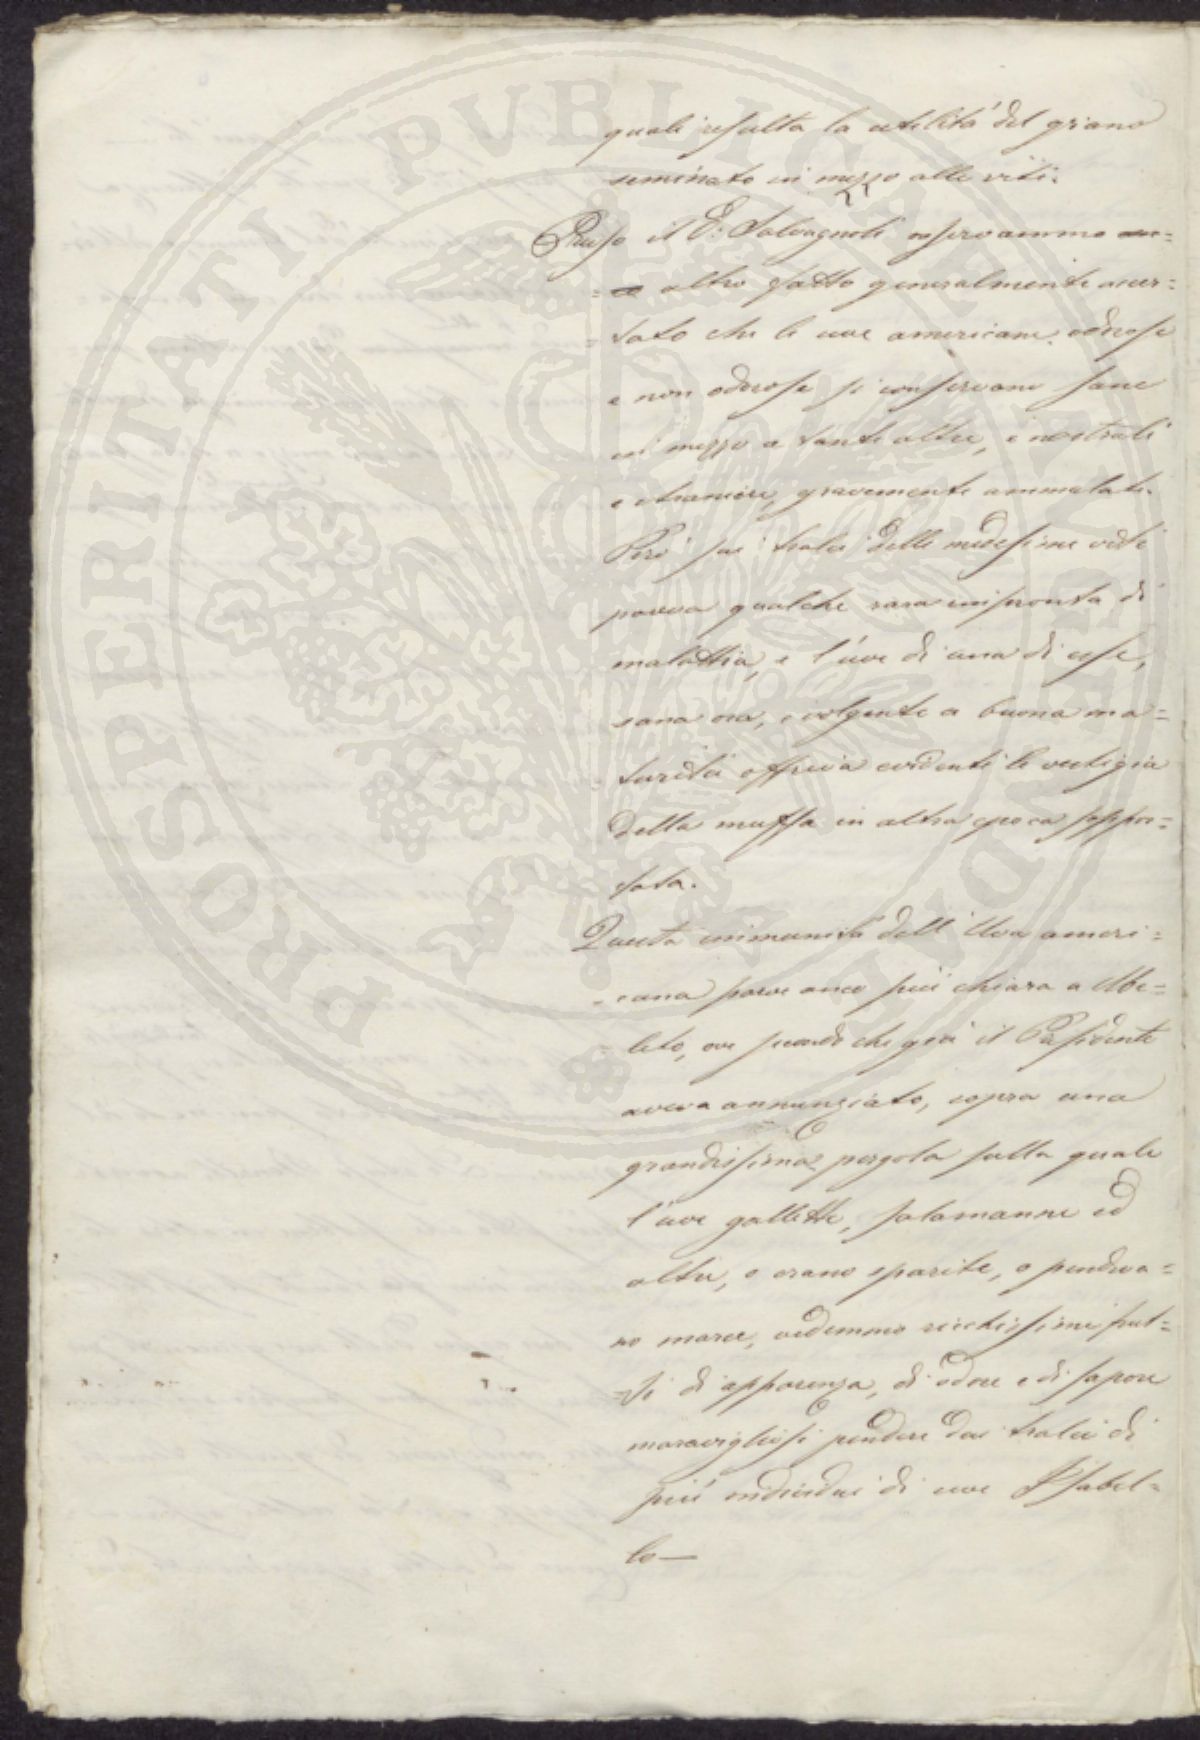 quali resulta la utilità del grano
seminato in mezzo alle viti.
Presso il D: Salvagnoli osservammo an=
=co altro fatto generalmente accer=
=tato che le uve americane, odorose
e non odorose si conservano sane
in mezzo a tante altre, e nostrali
e straniere, gravemente ammalate.
Però sui tralci delle medesime viti
pareva qualche rara impronta di
malattia, e l'uve di una di esse,
sana ora, e volgente a buona ma=
=turità offriva evidenti le vestigia
della muffa in altra epoca soppor=
tata.
Questa immunità dell'Uva ameri=
=cana parve anco più chiara a Me=
=leto, ove secondo che già il Presidente
aveva annunziato, sopra una
grandissima pergola sulla quale
l'uve gallette, salamanne ed
altre, o erano sparite, o pendeva=
no marce, vedemmo ricchissimi frut=
=ti di apparenza, di odore e di sapore
maravigliosi pendere dai tralci di
più individui di uve Isabel=
le —
PROSPERITATI PVBLICAE AVGENDAE